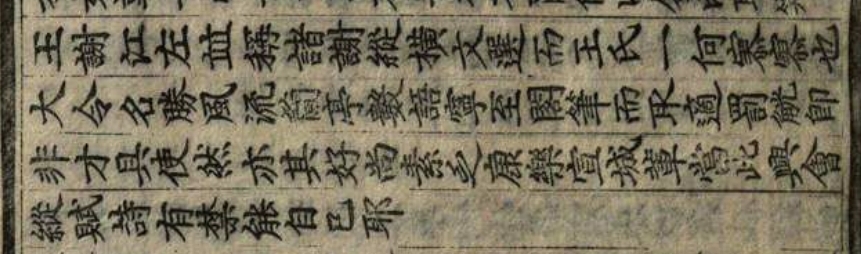 王謝江左並稱諸謝縱橫文選而王氏一何寥寥也
大令名勝風流蘭亭數語寧至閣筆而取適罰觥即
非才具使然亦其好尚素乏康樂宣城輩當此興會
縱賦詩有禁能自已耶